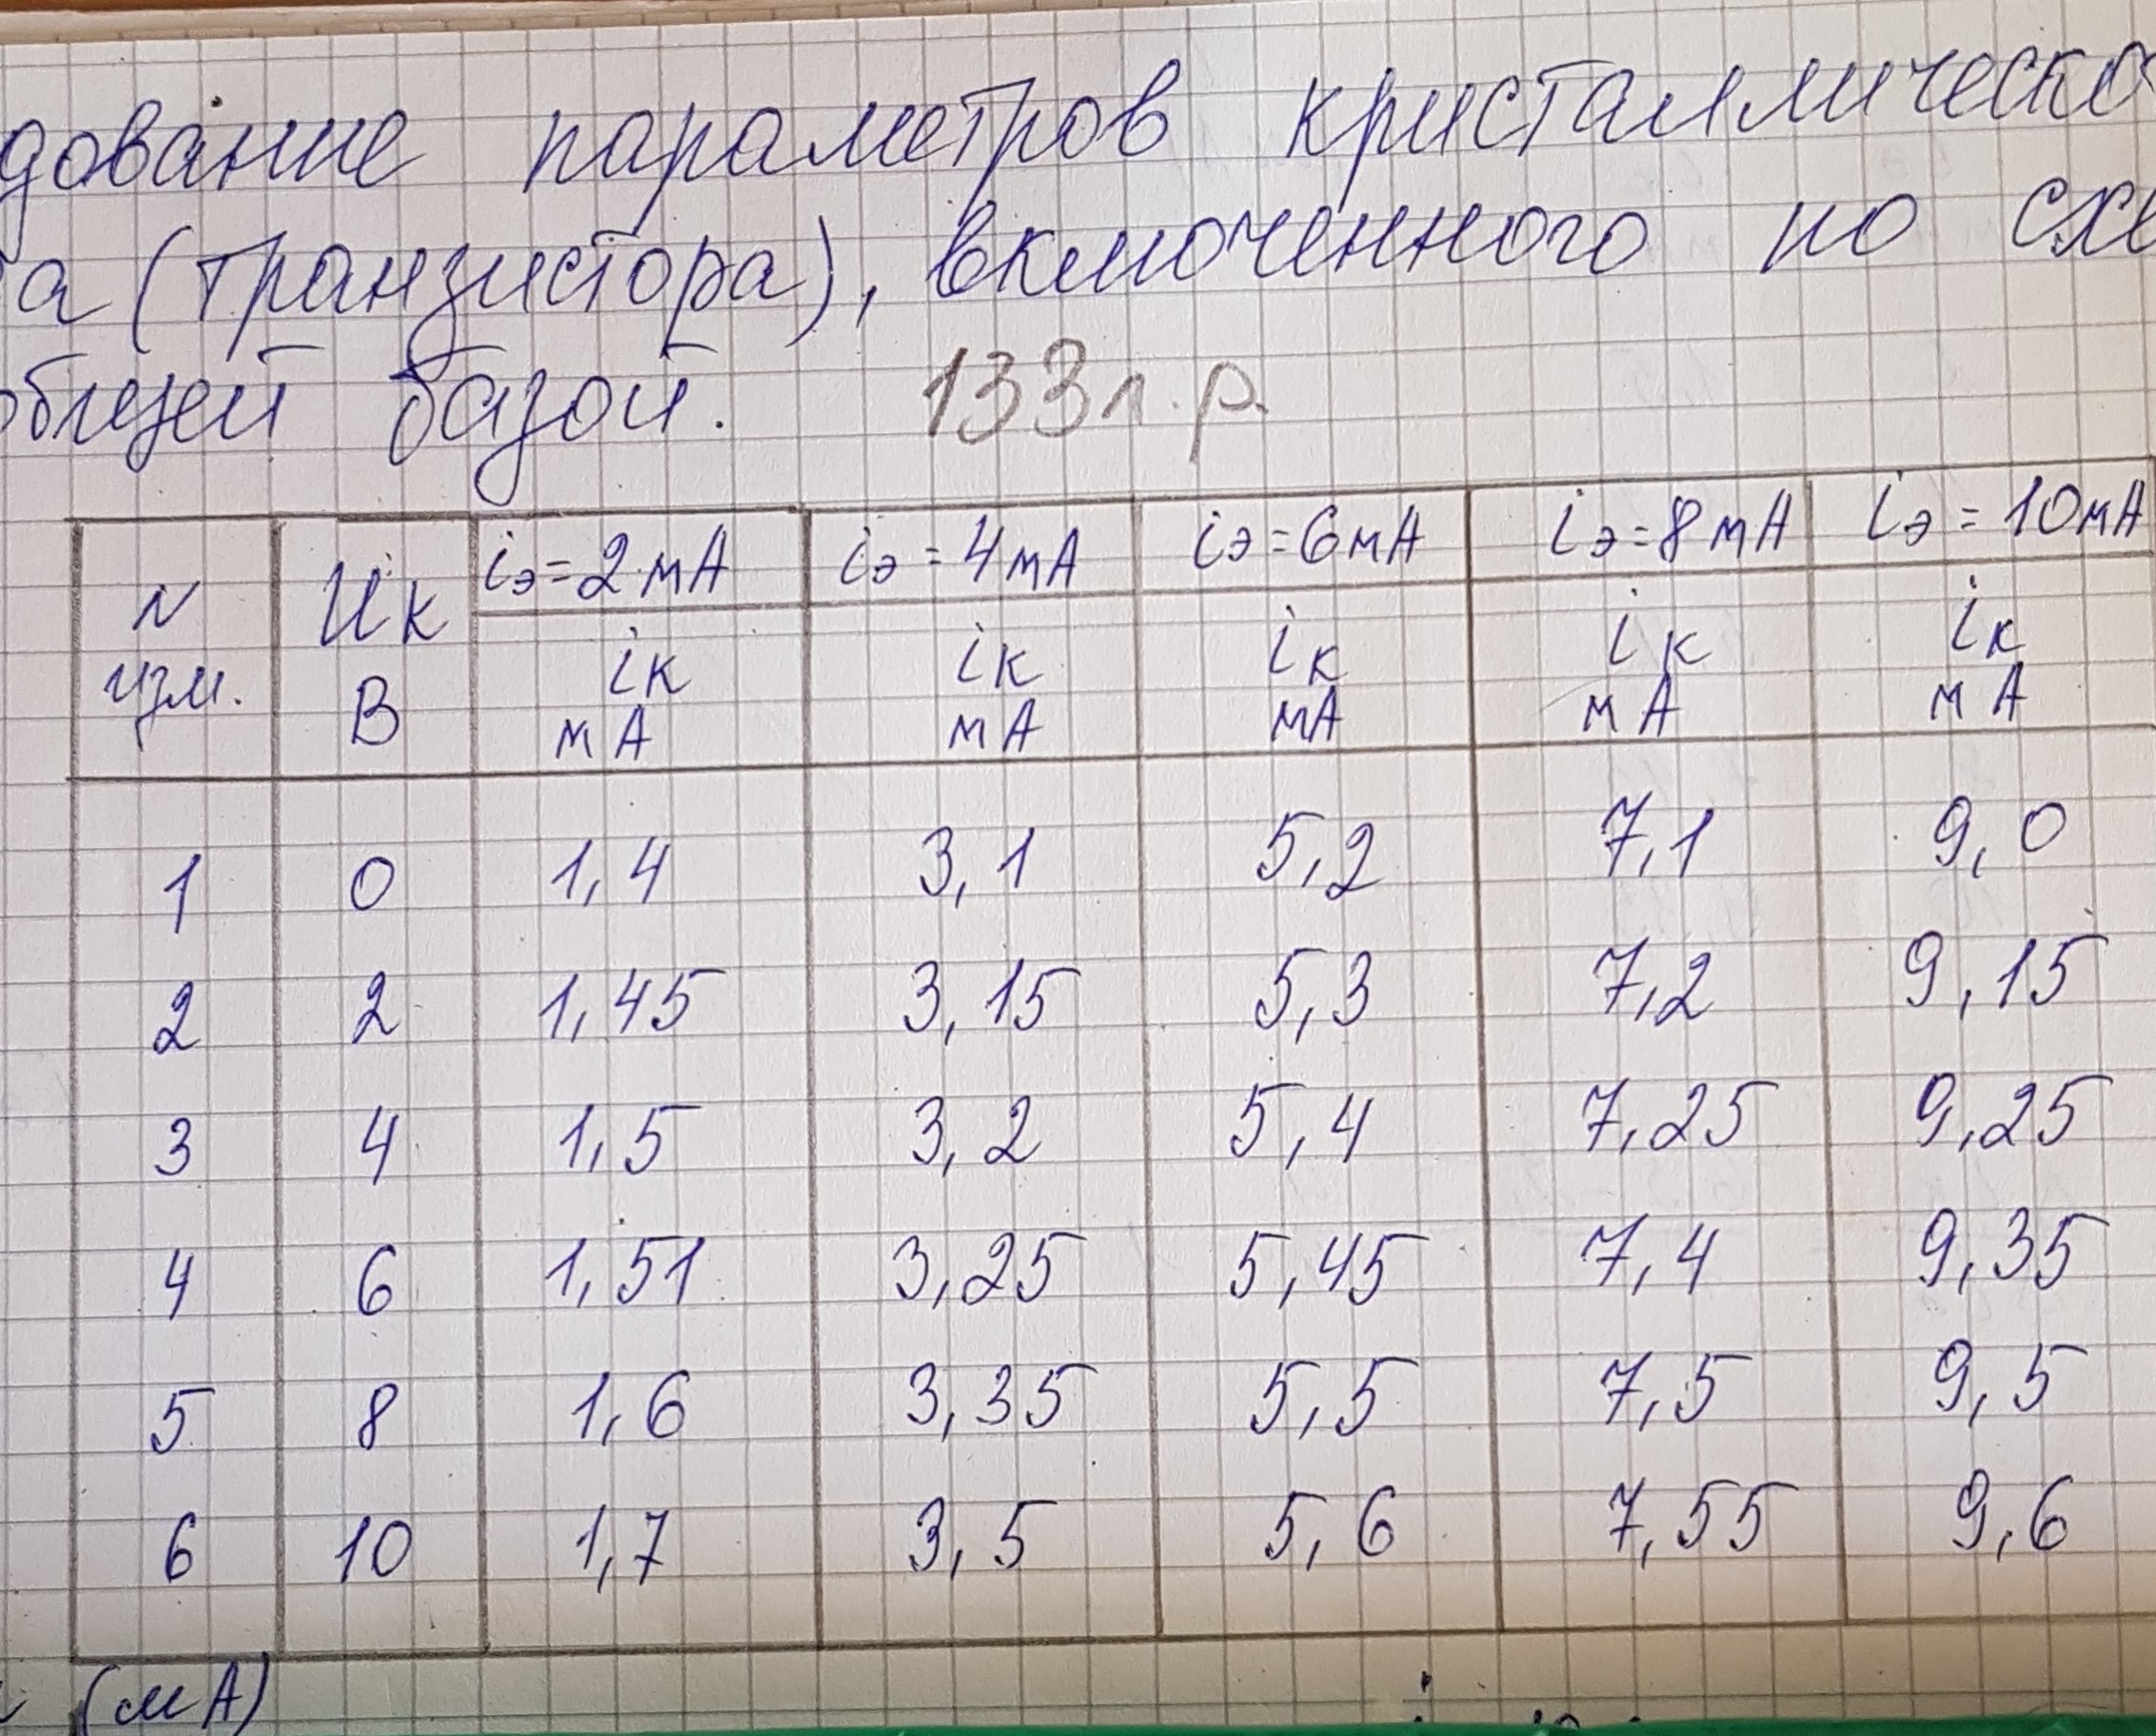 дование параметров кристаллическо
а (транзистора), включенного по схе
общей базой. 133 л.р.
N изм. Uк В iэ=2мА iэ=4мА iэ=6мА iэ=8мА iэ=10мА
iк мА iк мА iк мА iк мА iк мА
1 0 1,4 3,1 5,2 7,1 9,0
2 2 1,45 3,15 5,3 7,2 9,15
3 4 1,5 3,2 5,4 7,25 9,25
4 6 1,51 3,25 5,45 7,4 9,35
5 8 1,6 3,35 5,5 7,5 9,5
6 10 1,7 3,5 5,6 7,55 9,6
(мА)